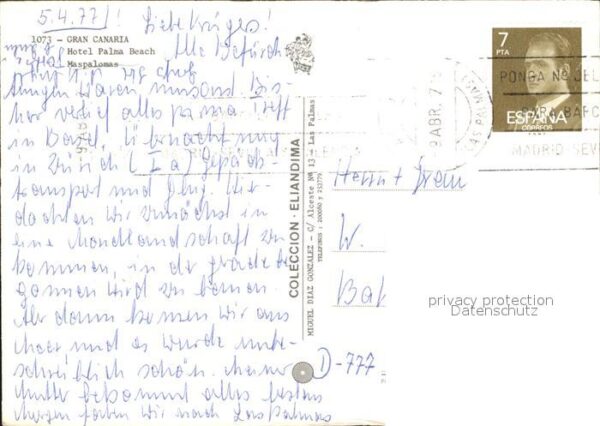 5.4.77! Liebe Krügers!
1073 - GRAN CANARIA
Hotel Palma Beach
Maspalomas
Alle Befürch-
tungen waren umsonst. Bis-
her verlief alles prima. Treff
in Basel, Übernachtung
in Zürich (Ia) Gepäck-
transport und Flug. Hier
dachten wir zunächst in
eine Mondlandschaft zu
kommen, in der gerade be-
gonnen wird zu bauen.
Aber dann kamen wir ans
Meer und es wurde unbe-
schreiblich schön. Meiner
Mutter bekommt alles bestens
Morgen fahren wir nach Las Palmas
COLECCION - ELIANDIMA
MIGUEL DIAZ GONZALEZ - C/ Alceste Nº 13 - Las Palmas
7
PTA
ESPAÑA
CORREOS
PONGA Nº DEL
MADRID SEV
ABR. 7
Herrn + Frau
W.
D-777
privacy protection
Datenschutz